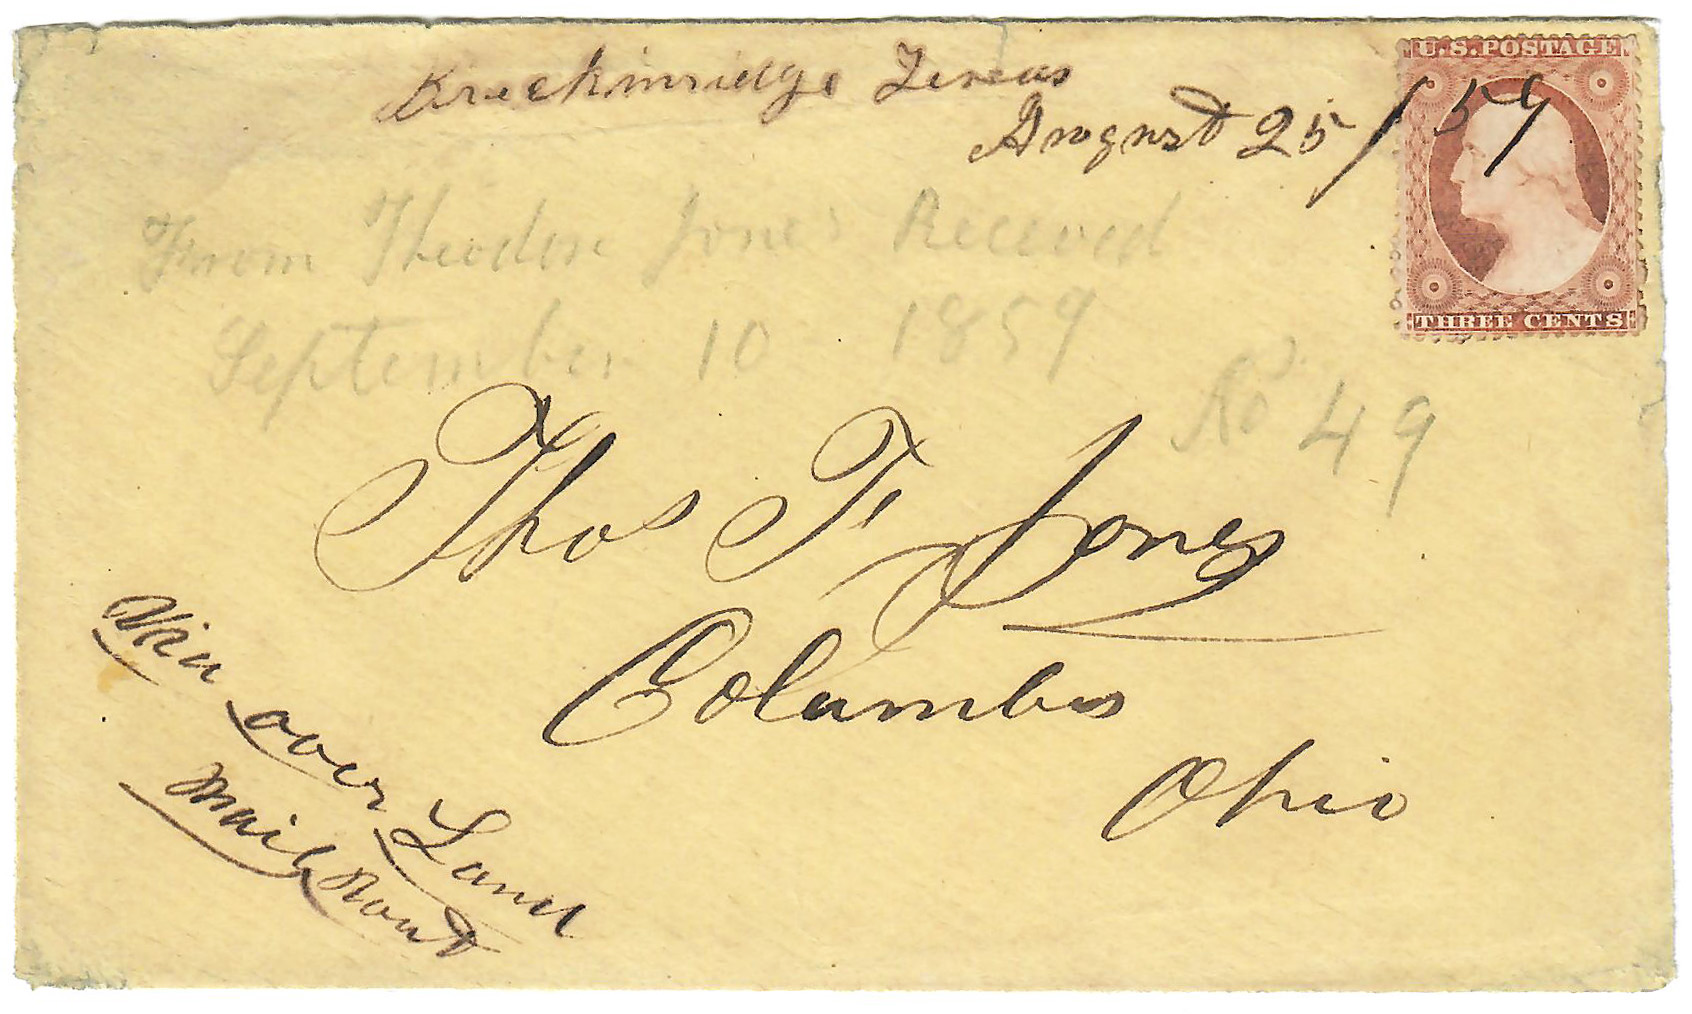 Breckinridge Texas
August 25/59
U.S. POSTAGE
THREE CENTS
From Theodore Jones Received
September 10 1859
No 49
Thos F. Jones
Columbus
Ohio
Via over Land
Mail Rout